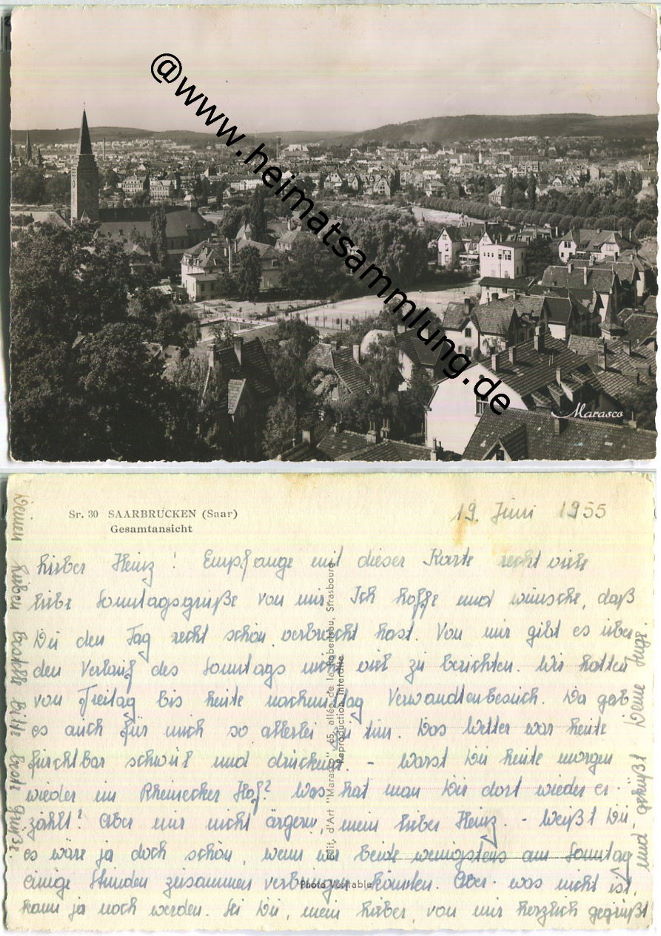 @www.heimatsammlung.de
Marasco
Sr. 30 SAARBRÜCKEN (Saar)
Gesamtansicht
19. Juni 1955
Lieber Heinz! Empfange mit dieser Karte recht viele
liebe Sonntagsgrüße von mir. Ich hoffe und wünsche, daß
Du den Tag recht schön verbracht hast. Von mir gibt es über
den Verlauf des Sonntags nicht viel zu berichten. Wir hatten
von Freitag bis heute nachmittag Verwandtenbesuch. Da gab
es auch für mich so allerlei zu tun. Das Wetter war heute
furchtbar schwül und drückend. - Warst Du heute morgen
wieder im Rheinecker Hof? Was hat man Dir dort wieder er-
zählt? Aber nur nicht ärgern, mein lieber Heinz. - Weißt Du,
es wäre ja doch schön, wenn wir beide wenigstens am Sonntag
einige Stunden zusammen verbringen könnten. Aber was nicht ist,
kann ja noch werden. Sei Du, mein Lieber, von mir herzlich gegrüßt
und geküßt Deine Inge
Deinen lieben Eltern bitte beste Grüße.
Edit. d'Art "Marasco" 65, allée de la Robertsau, Strasbourg
Reproduction Interdite
Photo véritable